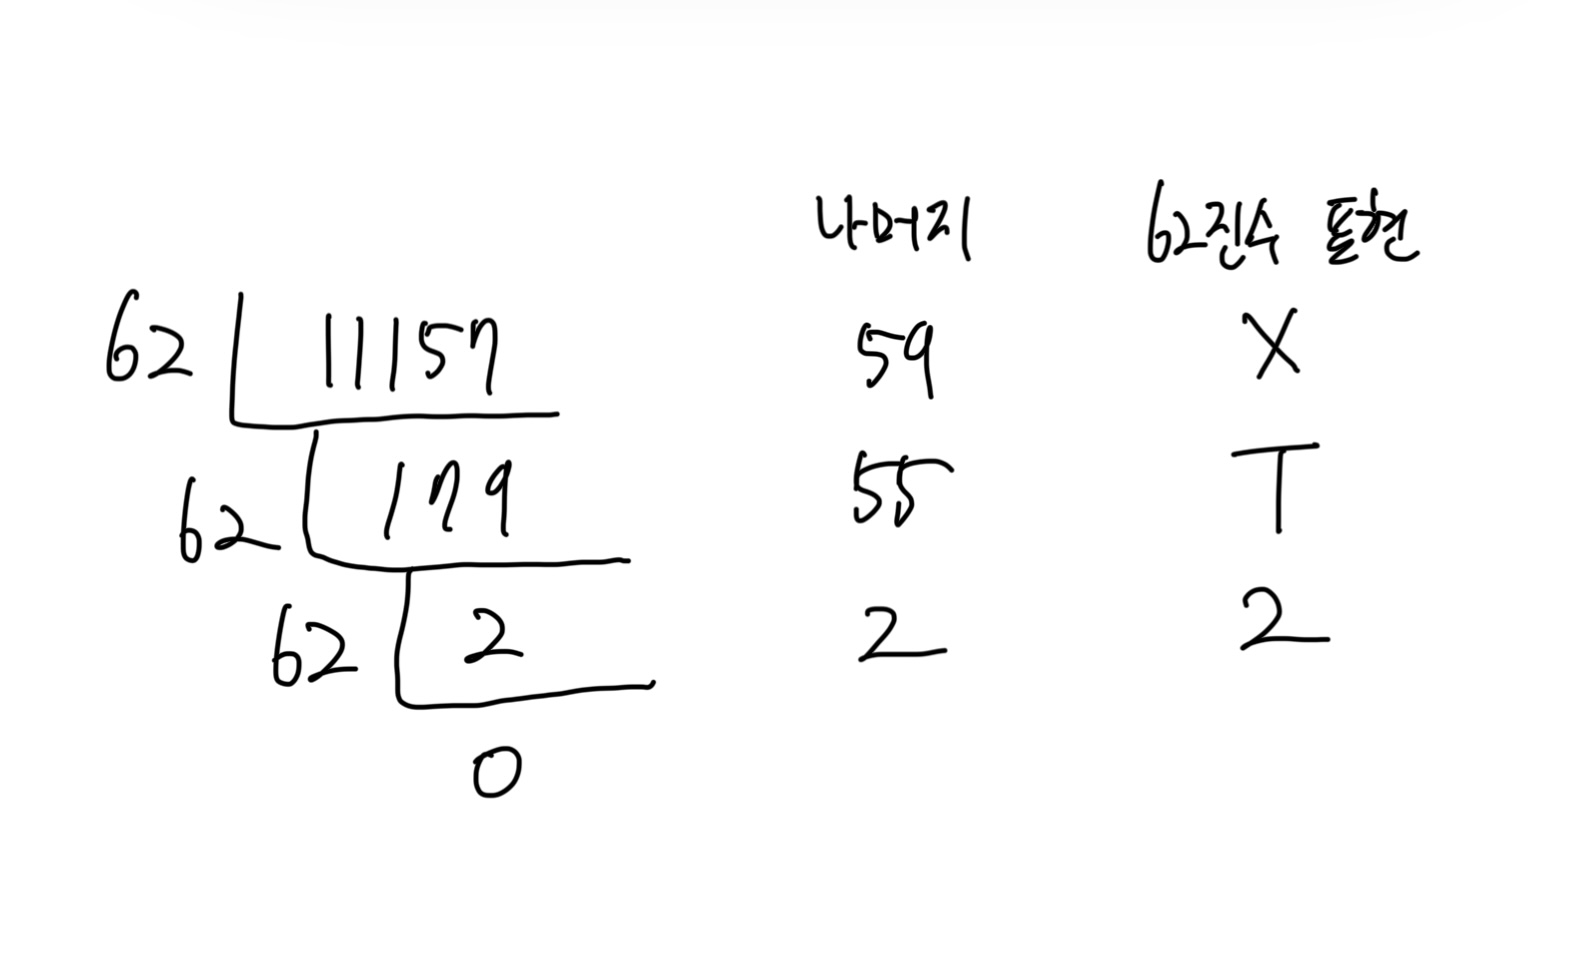 나머지 62진수 표현
62 11157 59 X
62 179 55 T
62 2 2 2
0